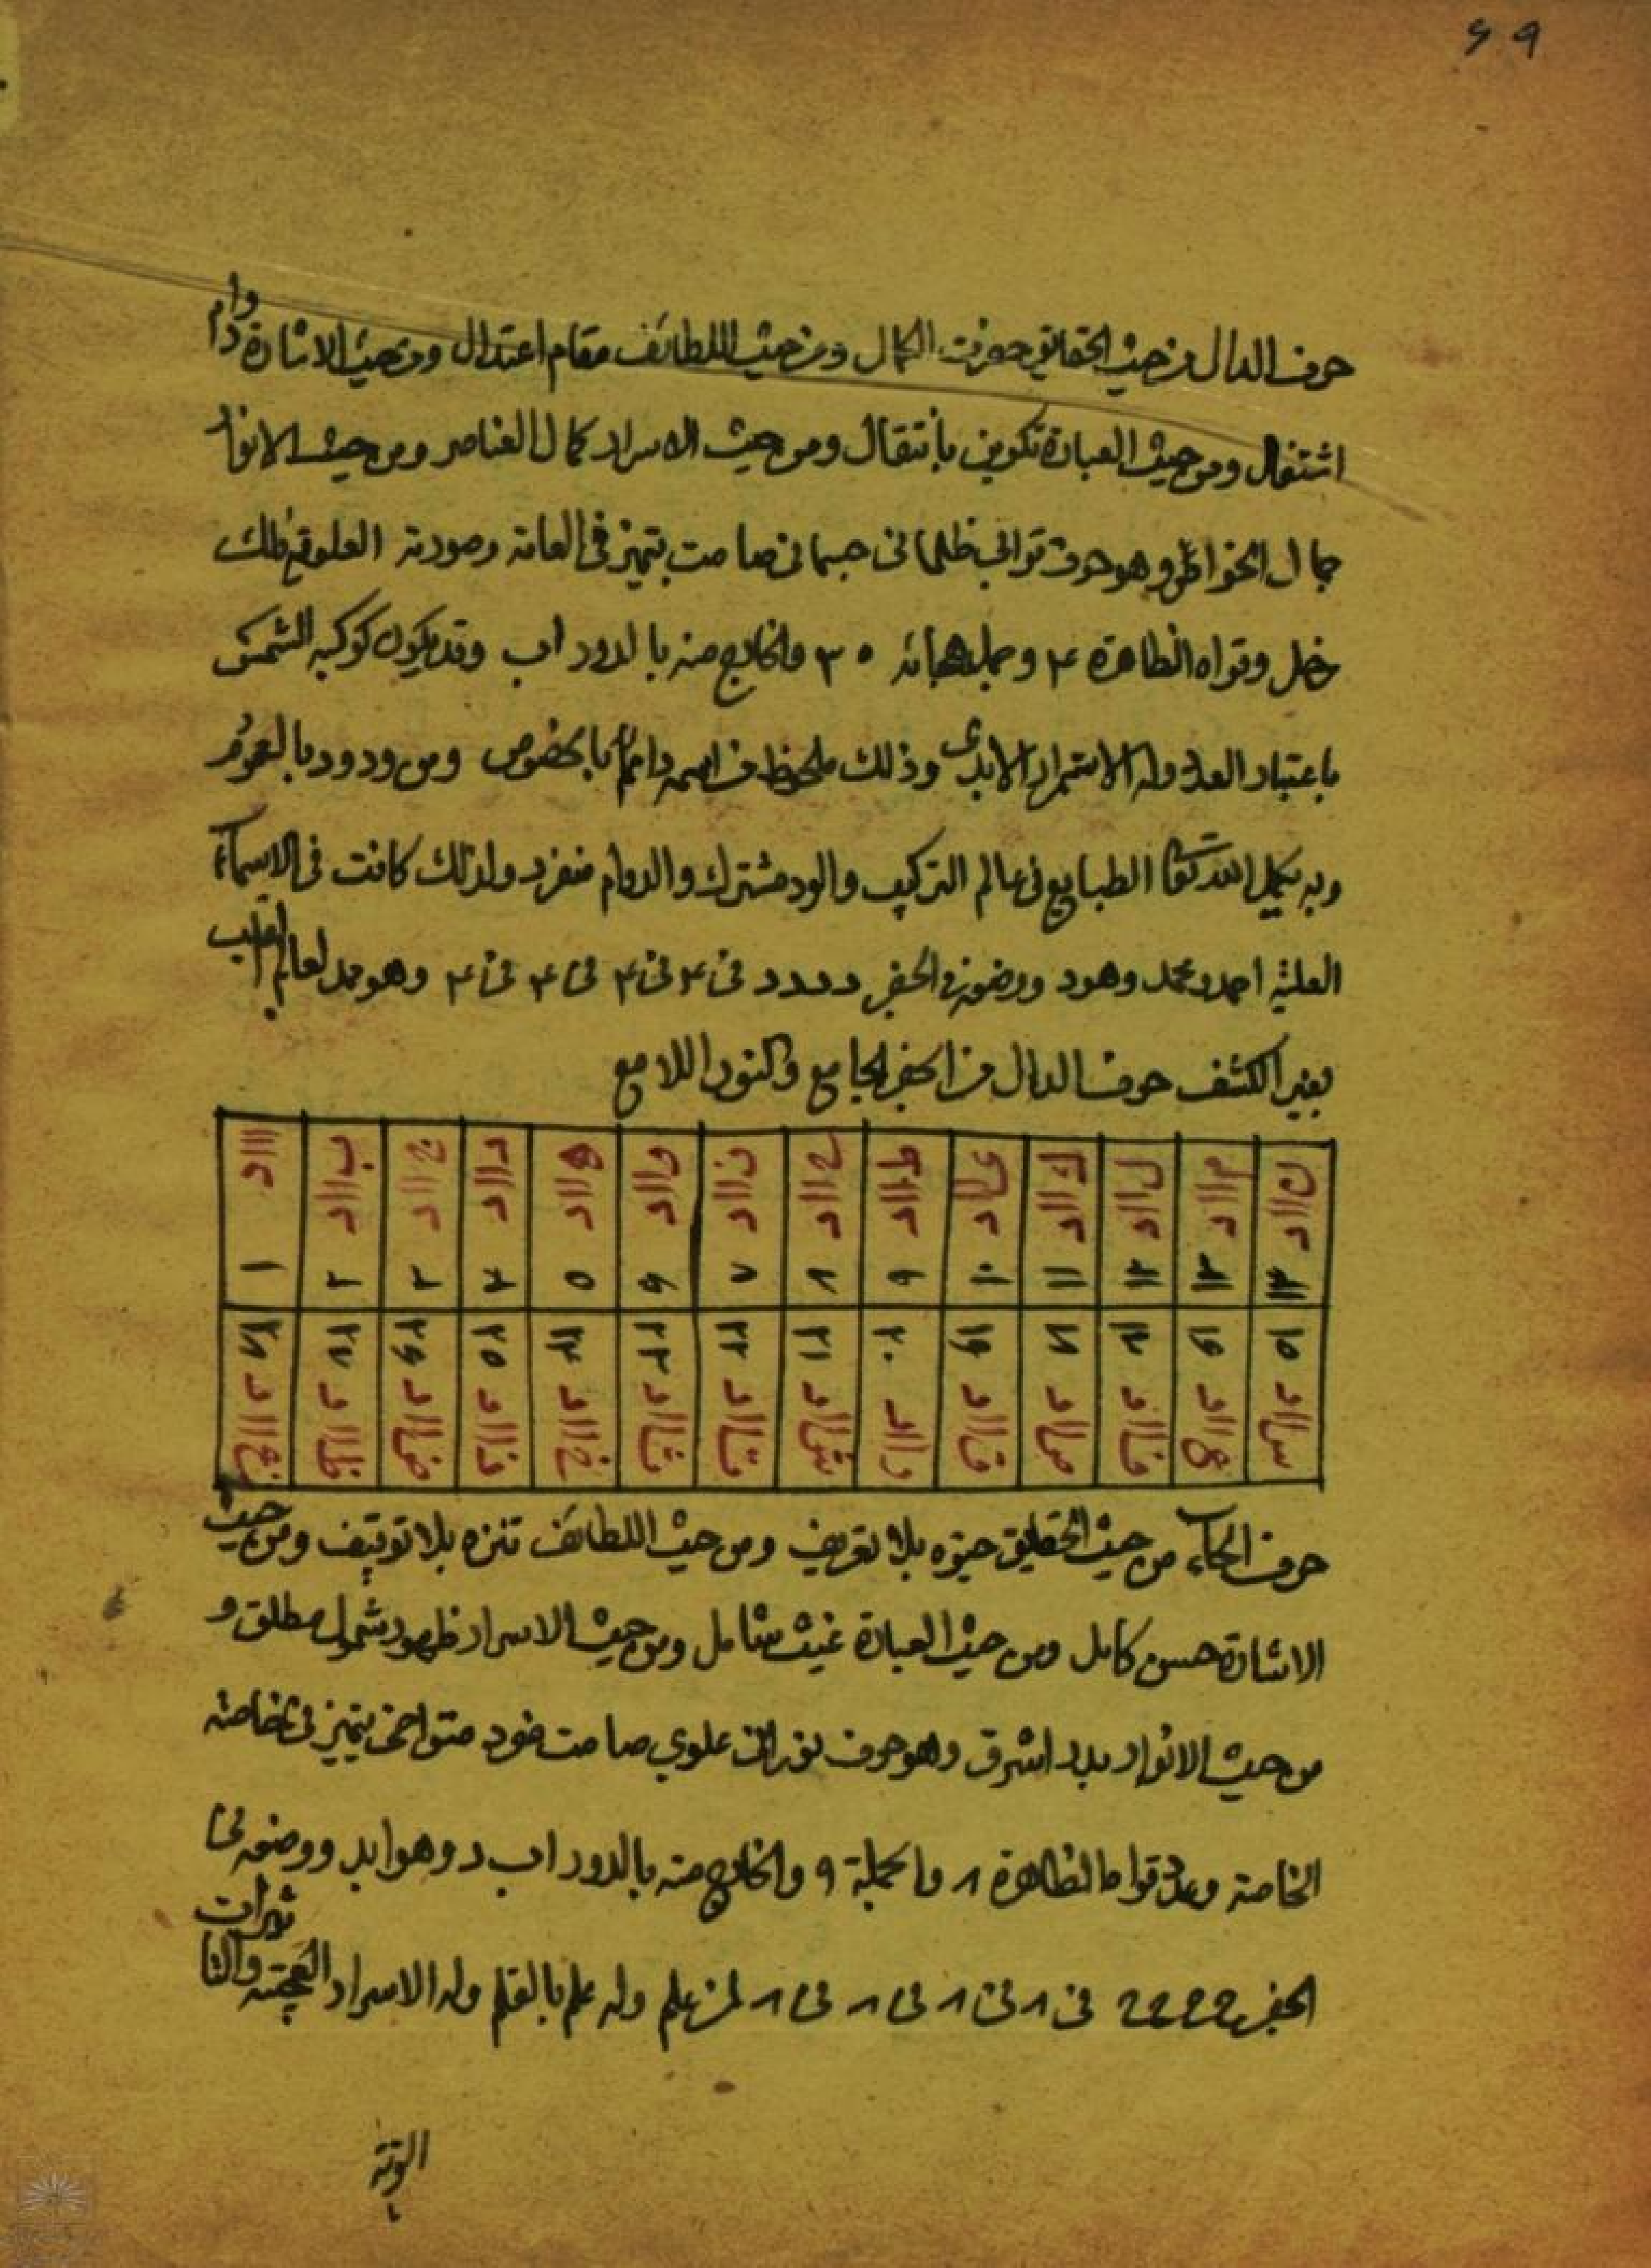 حرف الدال من حيث الحقايق حضرت الكمال ومن حيث اللطائف مقام اعتدال ومن حيث الاشارة دوام
اشتغال ومن حيث العبارة تكوين بانتقال ومن حيث الاسرار كمال العناصر ومن حيث الانوار
جمال الخواطر وهو حرف ترابي ظلماني جسماني صامت يتميز في العامة وصورته العلوية فلك
زحل وقواه الظاهرة ۴ وجملة هجائه ۳۵ والخارج منه بالدور اب وقد يكون كوكبه الشمس
باعتبار العدد وله الاستمرار الابدى وذلك ملحوظ من اسمه دائم بالخصوص ومن ودود بالعموم
وبه يكمل الله تعالى الطبايع في عالم التركيب والود مشترك والدوام منفرد ولذلك كانت في الاسماء
العلية احمد ومحمد وهود ووضعه في الجفر دددد في ۴ في ۴ في ۴ في ۴ وهو ممد لعالم القلب
بغير الكشف حرف الدال من الجفر الجامع والنور اللامع
دااا ۱ دااب ۲ دااج ۳ دااد ۴ دااه ۵ دااو ۶ دااز ۷ دااح ۸ دااط ۹ دااي ۱۰ دااك ۱۱ داال ۱۲ داام ۱۳ داان ۱۴
۲۸ دااغ ۲۷ دااظ ۲۶ دااض ۲۵ دااذ ۲۴ دااخ ۲۳ دااث ۲۲ داات ۲۱ دااش ۲۰ داار ۱۹ دااق ۱۷ دااص ۱۶ دااع ۱۵ دااس
حرف الحاء من حيث الحقايق حيوه بلا تعريف ومن حيث اللطائف تنزه بلا توقيف ومن حيث
الاشارة حسن كامل ومن حيث العبارة غيث شامل ومن حيث الاسرار ظهور شمول مطلق و
من حيث الانوار بدر اشرق وهو حرف نوراني علوي صامت يتميز في خاصة
الخاصة وعدد قواه الظاهرة ۸ والجملة ۹ والخارج منه بالدور اب د وهو ابد ووضعه في
الجفر حححح في ۸ في ۸ في ۸ في ۸ لمن علم وله علم بالقلم وله الاسرار العجيبة والتاثيرات